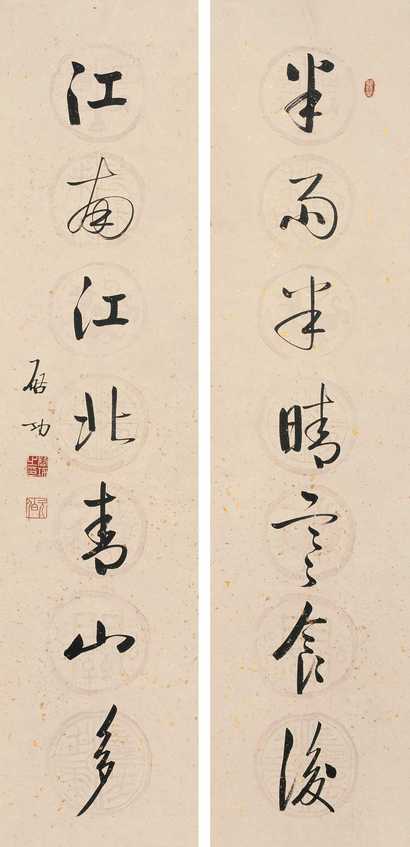 半雨半晴寒食後
江南江北青山多
启功